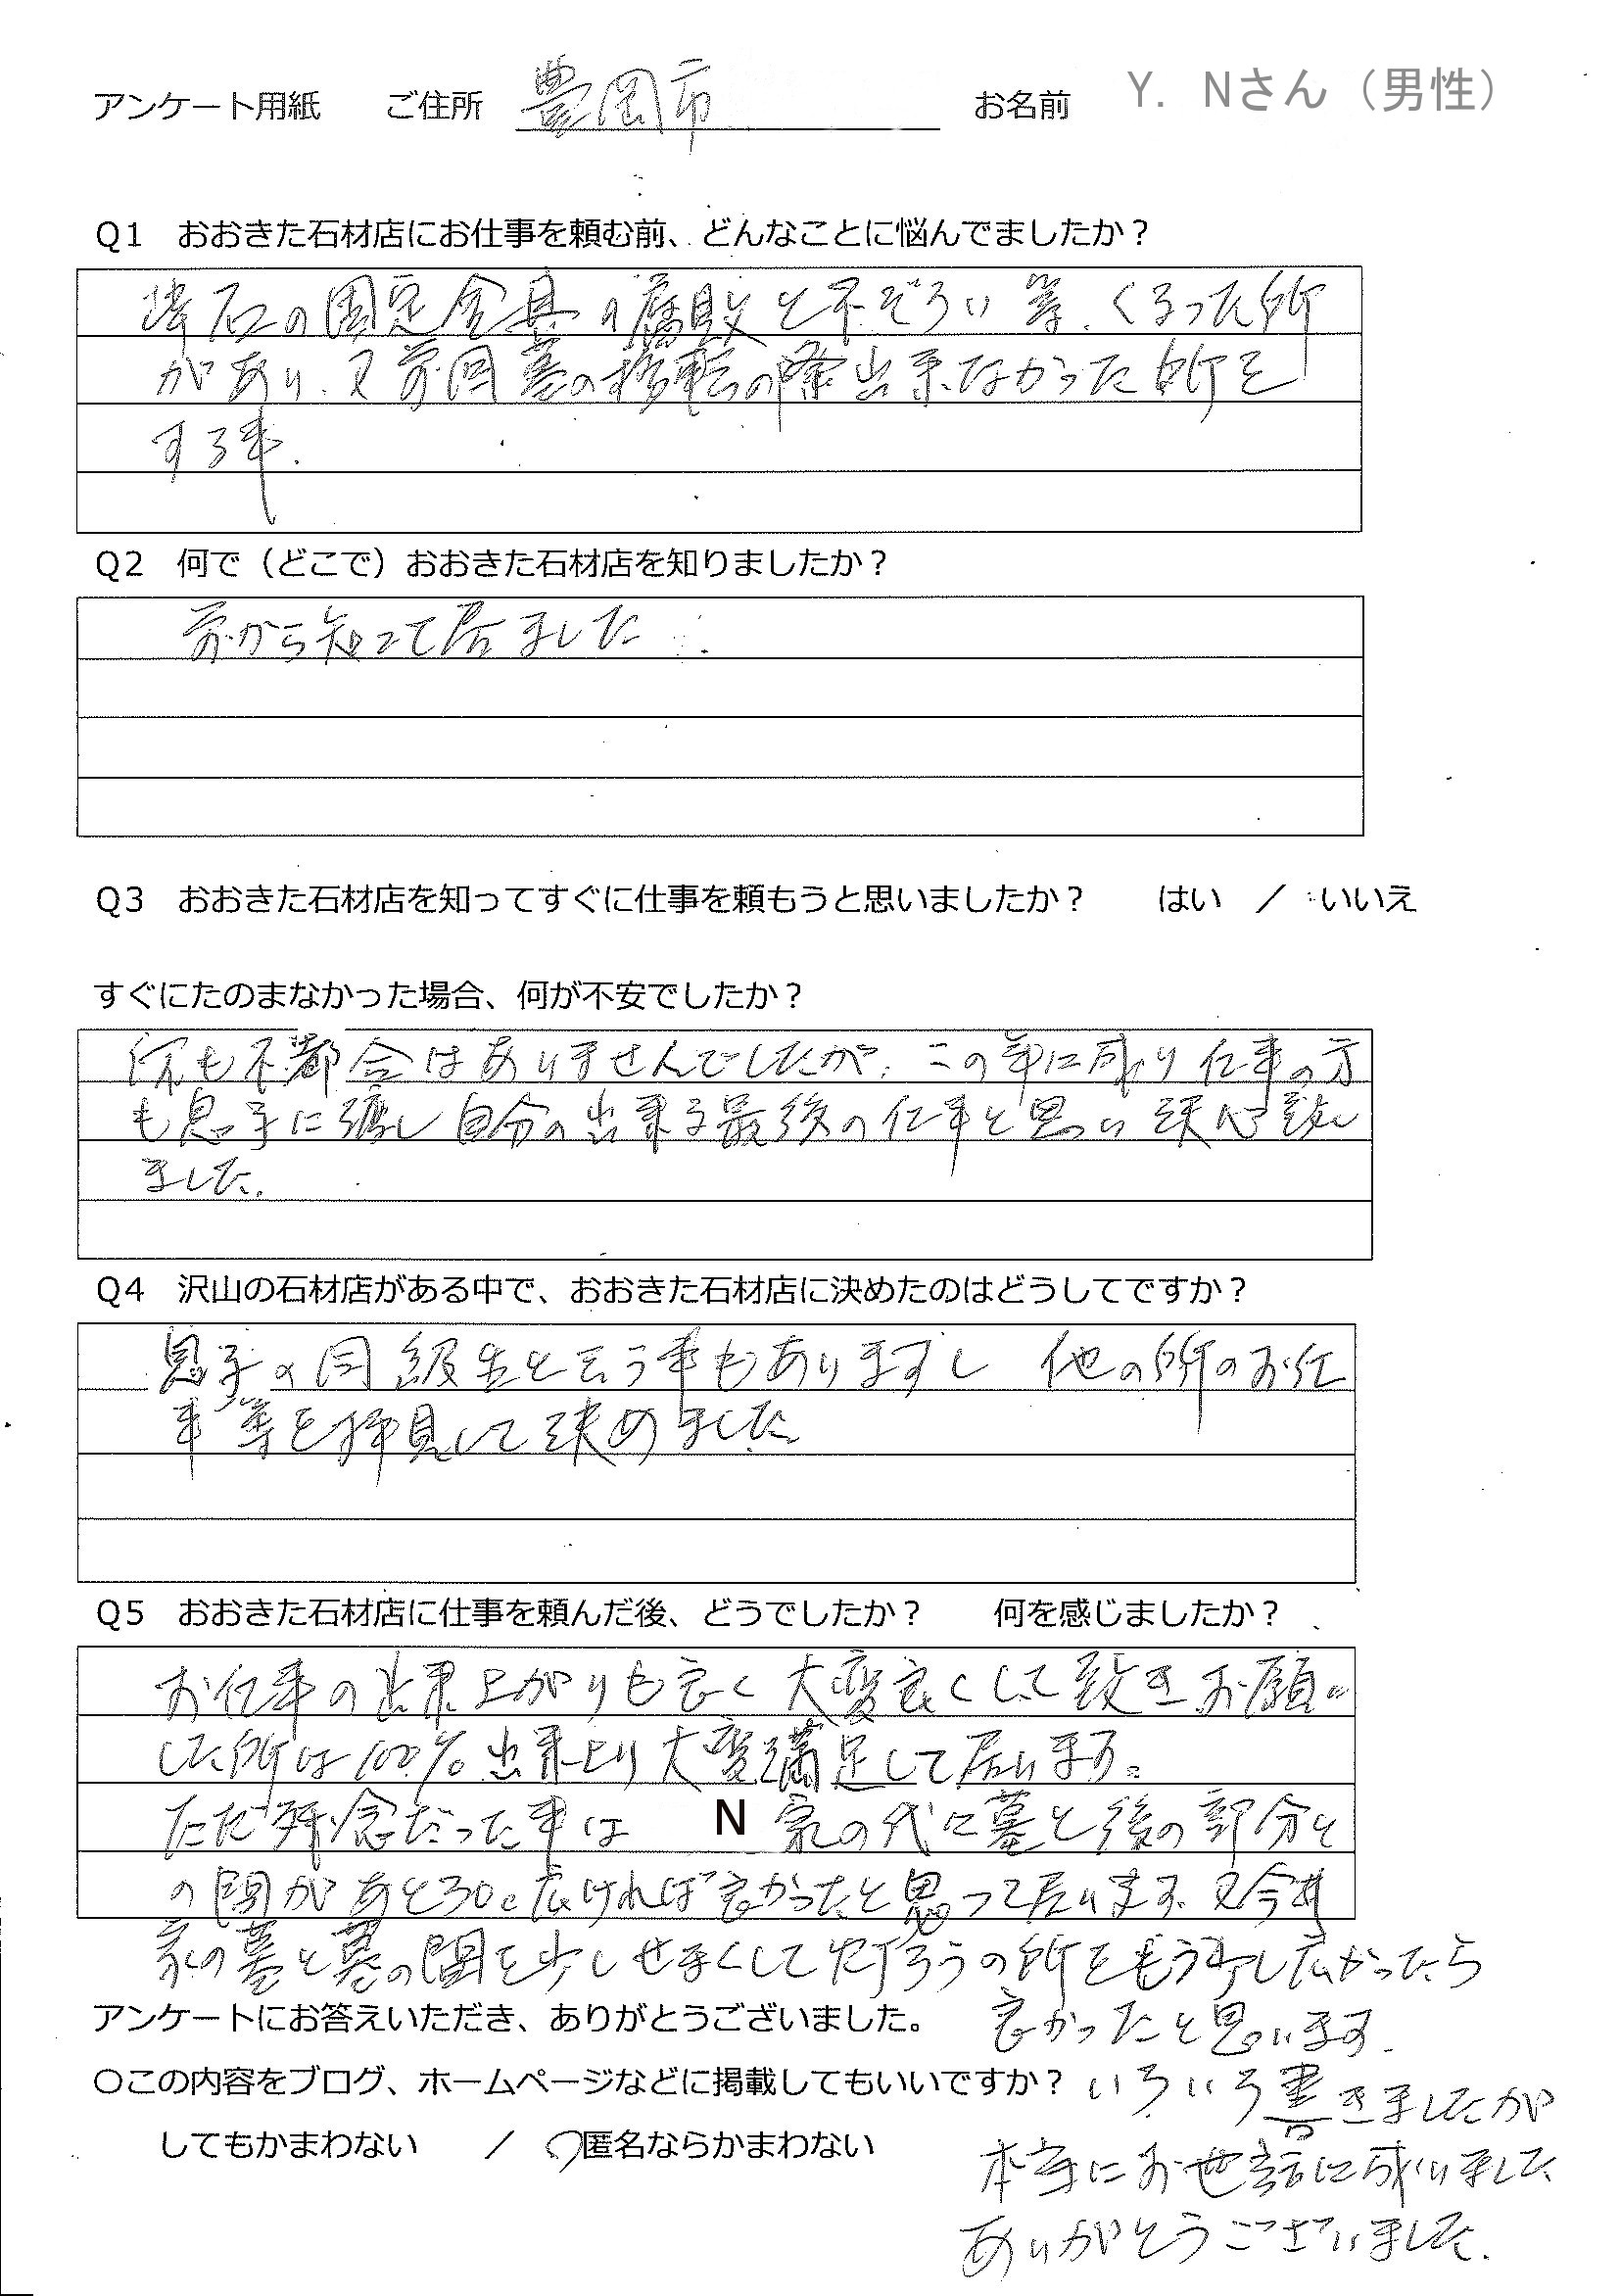 アンケート用紙 ご住所 豊岡市 お名前 Y. Nさん（男性）
Q1 おおきた石材店にお仕事を頼む前、どんなことに悩んでましたか？
石の固定金具の腐敗と不ぞろい等、くるった所
があり、又前回墓の移転の際出来なかった所を
する事.
Q2 何で（どこで）おおきた石材店を知りましたか？
前から知って居ました.
Q3 おおきた石材店を知ってすぐに仕事を頼もうと思いましたか？ はい ／ いいえ
すぐにたのまなかった場合、何が不安でしたか？
何も不都合はありませんでしたが、この年に成り仕事の方
も息子に譲し自分の出来る最後の仕事と思い決心致し
ました.
Q4 沢山の石材店がある中で、おおきた石材店に決めたのはどうしてですか？
息子の同級生と云う事もありますし 他の所のお仕
事等を拝見して決めました
Q5 おおきた石材店に仕事を頼んだ後、どうでしたか？ 何を感じましたか？
お仕事の出来上がりも良く 大変良くして致きお願い
した所は100%出来上り大変満足して居ります。
ただ残念だった事は N 家の代々墓と後の部分と
の間があと30c広ければ良かったと思って居ります. 又今井
家の墓と墓の間を少しせまくして灯ろうの所をもう少し広かったら
良かったと思います.
アンケートにお答えいただき、ありがとうございました。
○この内容をブログ、ホームページなどに掲載してもいいですか？
してもかまわない ／ 匿名ならかまわない
いろいろ書きましたが
本当にお世話に成りました
ありがとうございました.